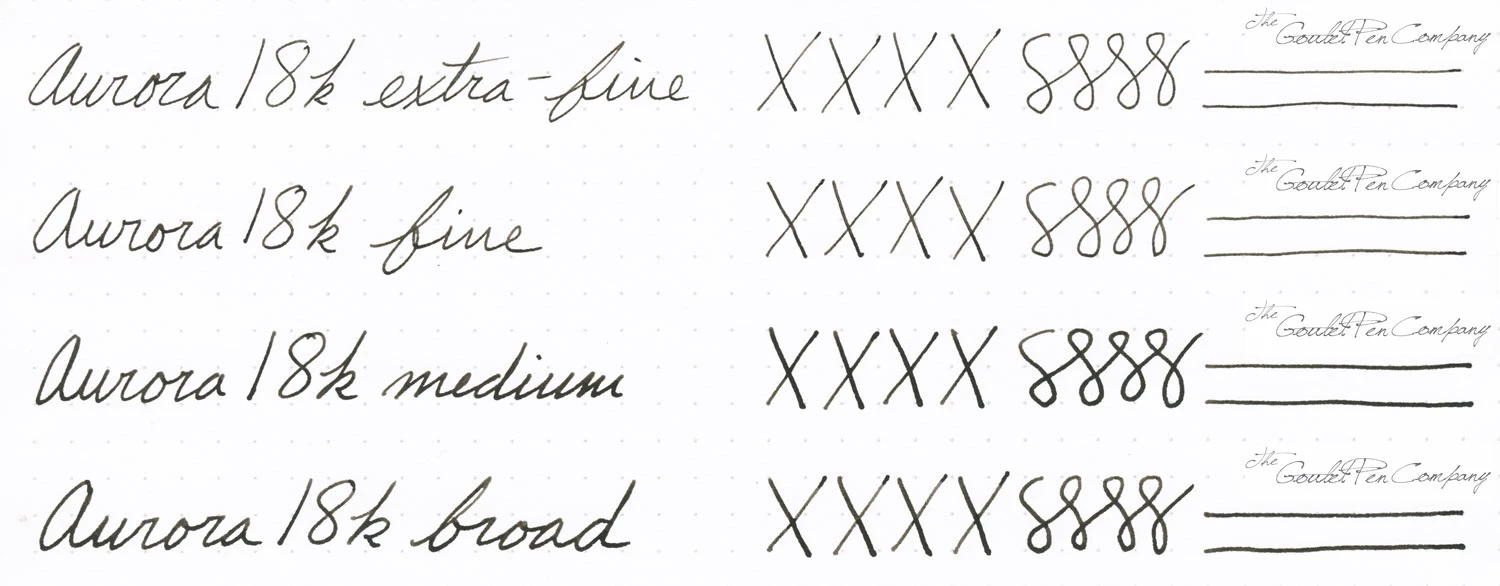 Aurora 18k extra-fine XXXX The Goulet Pen Company
Aurora 18k fine XXXX The Goulet Pen Company
Aurora 18k medium XXXX The Goulet Pen Company
Aurora 18k broad XXXX The Goulet Pen Company